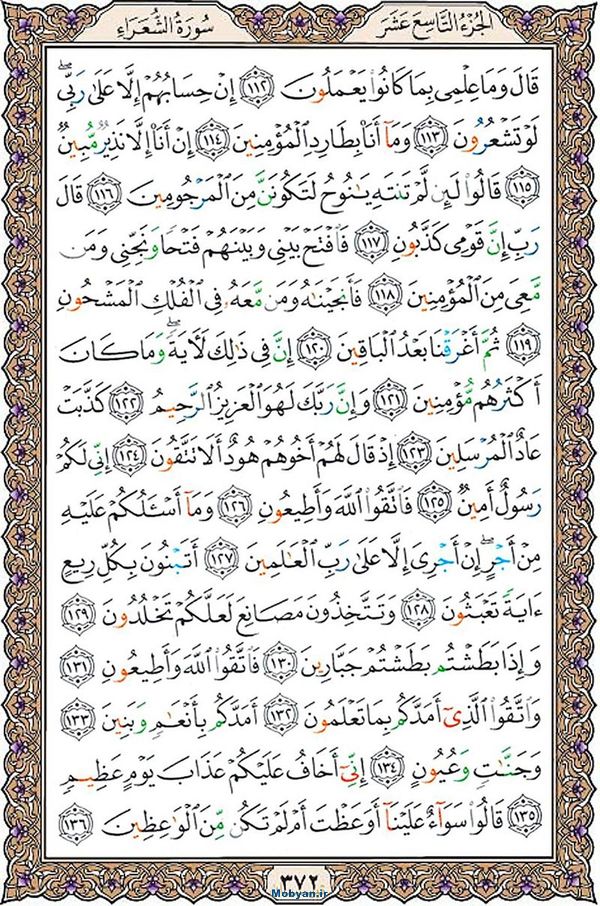 الجزء التاسع عشر
سورة الشعراء
قَالَ وَمَا عِلْمِى بِمَا كَانُوا۟ يَعْمَلُونَ ١١٢ إِنْ حِسَابُهُمْ إِلَّا عَلَىٰ رَبِّى ۖ
لَوْ تَشْعُرُونَ ١١٣ وَمَآ أَنَا۠ بِطَارِدِ ٱلْمُؤْمِنِينَ ١١٤ إِنْ أَنَا۠ إِلَّا نَذِيرٌ مُّبِينٌ
١١٥ قَالُوا۟ لَئِن لَّمْ تَنتَهِ يَـٰنُوحُ لَتَكُونَنَّ مِنَ ٱلْمَرْجُومِينَ ١١٦ قَالَ
رَبِّ إِنَّ قَوْمِى كَذَّبُونِ ١١٧ فَٱفْتَحْ بَيْنِى وَبَيْنَهُمْ فَتْحًا وَنَجِّنِى وَمَن
مَّعِىَ مِنَ ٱلْمُؤْمِنِينَ ١١٨ فَأَنجَيْنَـٰهُ وَمَن مَّعَهُۥ فِى ٱلْفُلْكِ ٱلْمَشْحُونِ
١١٩ ثُمَّ أَغْرَقْنَا بَعْدُ ٱلْبَاقِينَ ١٢٠ إِنَّ فِى ذَٰلِكَ لَـَٔايَةً ۖ وَمَا كَانَ
أَكْثَرُهُم مُّؤْمِنِينَ ١٢١ وَإِنَّ رَبَّكَ لَهُوَ ٱلْعَزِيزُ ٱلرَّحِيمُ ١٢٢ كَذَّبَتْ
عَادٌ ٱلْمُرْسَلِينَ ١٢٣ إِذْ قَالَ لَهُمْ أَخُوهُمْ هُودٌ أَلَا تَتَّقُونَ ١٢٤ إِنِّى لَكُمْ
رَسُولٌ أَمِينٌ ١٢٥ فَٱتَّقُوا۟ ٱللَّهَ وَأَطِيعُونِ ١٢٦ وَمَآ أَسْـَٔلُكُمْ عَلَيْهِ
مِنْ أَجْرٍ ۖ إِنْ أَجْرِىَ إِلَّا عَلَىٰ رَبِّ ٱلْعَـٰلَمِينَ ١٢٧ أَتَبْنُونَ بِكُلِّ رِيعٍ
ءَايَةً تَعْبَثُونَ ١٢٨ وَتَتَّخِذُونَ مَصَانِعَ لَعَلَّكُمْ تَخْلُدُونَ ١٢٩
وَإِذَا بَطَشْتُم بَطَشْتُمْ جَبَّارِينَ ١٣٠ فَٱتَّقُوا۟ ٱللَّهَ وَأَطِيعُونِ ١٣١
وَٱتَّقُوا۟ ٱلَّذِىٓ أَمَدَّكُم بِمَا تَعْلَمُونَ ١٣٢ أَمَدَّكُم بِأَنْعَـٰمٍ وَبَنِينَ ١٣٣
وَجَنَّـٰتٍ وَعُيُونٍ ١٣٤ إِنِّىٓ أَخَافُ عَلَيْكُمْ عَذَابَ يَوْمٍ عَظِيمٍ
١٣٥ قَالُوا۟ سَوَآءٌ عَلَيْنَآ أَوَعَظْتَ أَمْ لَمْ تَكُن مِّنَ ٱلْوَٰعِظِينَ ١٣٦
٣٧٢
Mobyan.ir